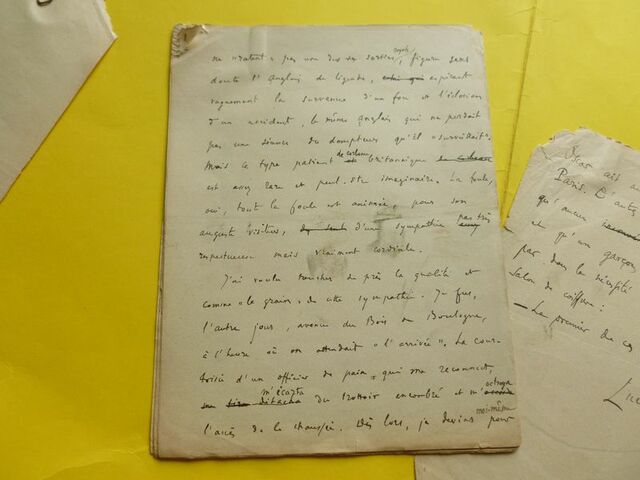 ne "ratent" pas une des ses sorties royales, figure sans
doute l'Anglais de légende, celui qui espérant
vaguement la survenue d'un fou et l'éclosion
d'un accident, le même anglais qui ne perdait
pas une séance du dompteur qu'il "surveillait".
Mais ce type patient et de costume britannique
est assez rare et peut-être imaginaire. La foule,
oui, toute la foule est animée, pour son
auguste visiteur, d'une sympathie pas très
respectueuse mais vraiment cordiale.
J'ai voulu toucher de près la qualité et
comme "le grain" de cette sympathie. Je fus,
l'autre jour, avenue du Bois de Boulogne,
à l'heure où on attendait "l'arrivée". La cour-
toisie d'un officier de paix, qui me reconnut,
m'écarta détacha du trottoir encombré et m'octroya
l'accès de la chaussée. Dès lors, je devins pour moi-même
Paris. D'autres
qu'aucun
et qu'un garçon
par dans la nécessité
Salon de coiffure :
La premier de ces